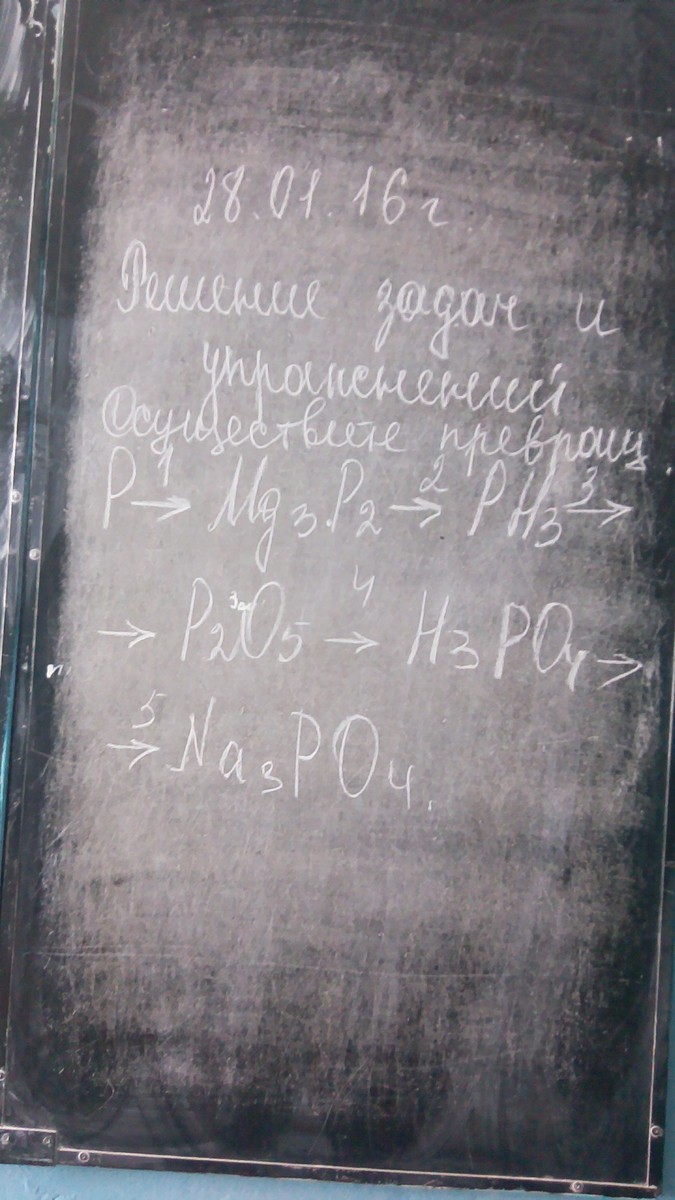 28.01.16 г
Решение задач и
упражнений
Осуществите превращ.
P →1 Mg3P2 →2 PH3 →3
→ P2O5 →4 H3PO4 →
→5 Na3PO4.